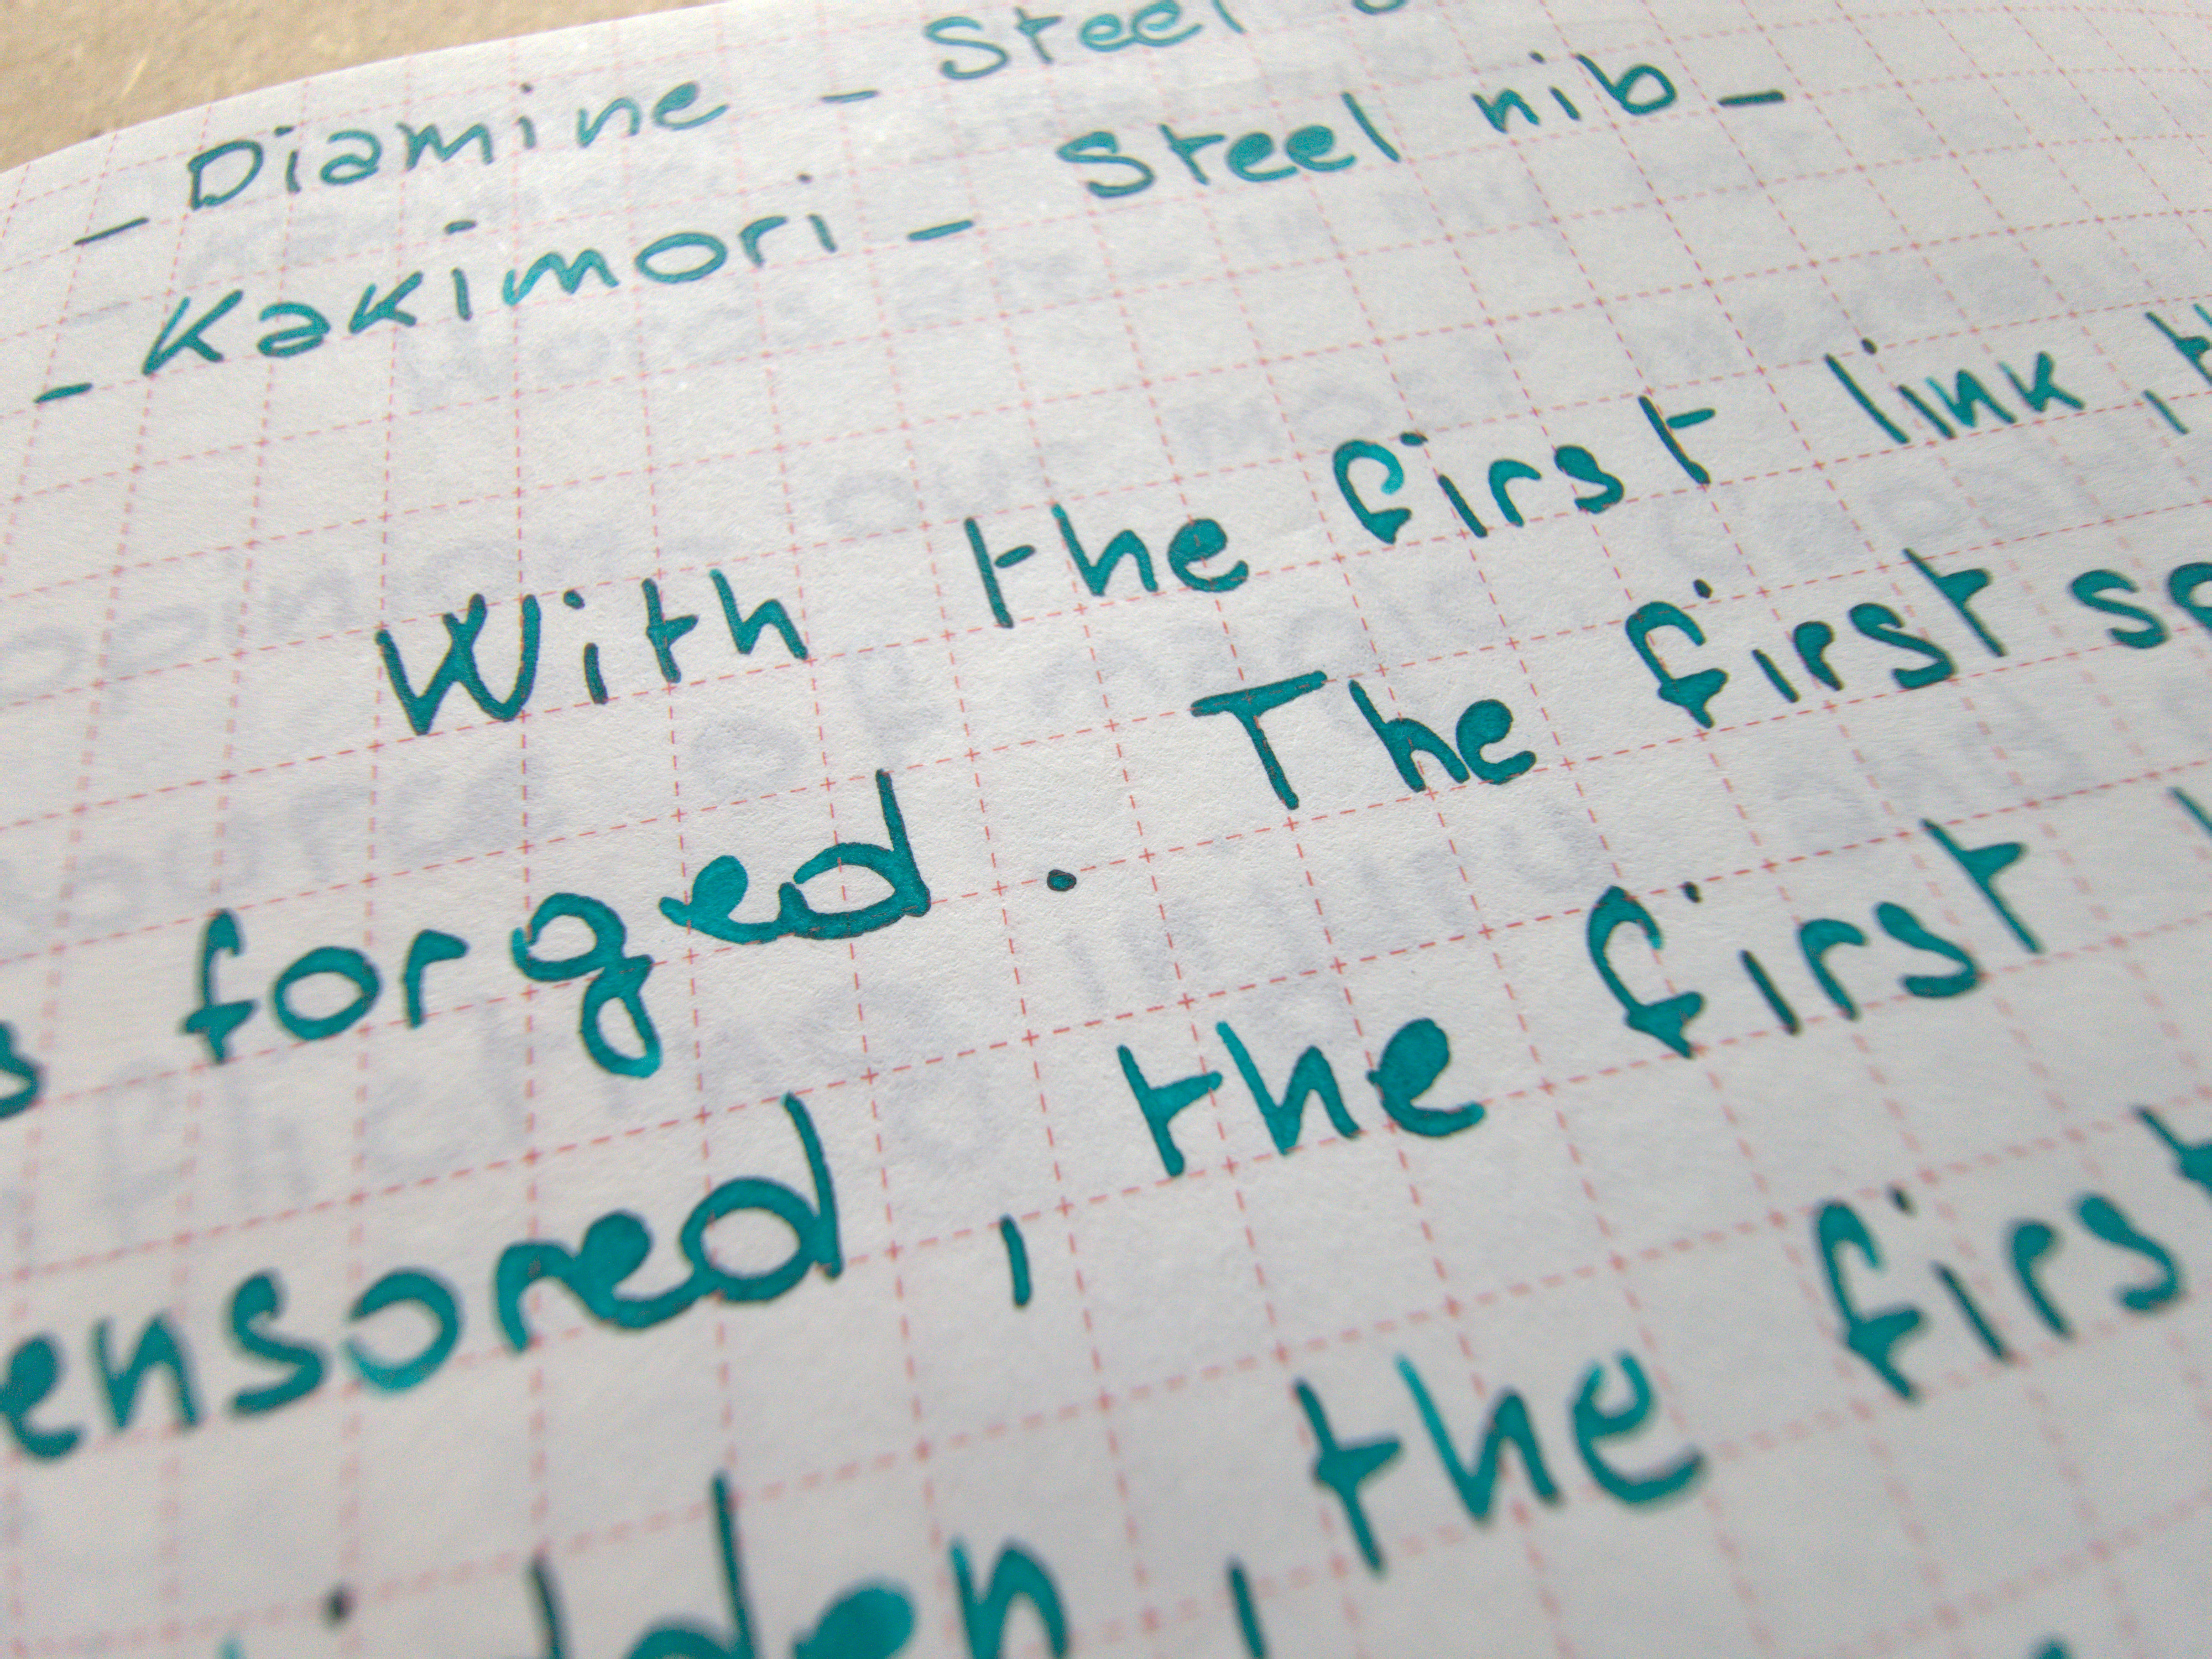 - Diamine - Steel
- Kakimori - Steel nib -
With the first link,
forged. The first
ensored, the first
, the first